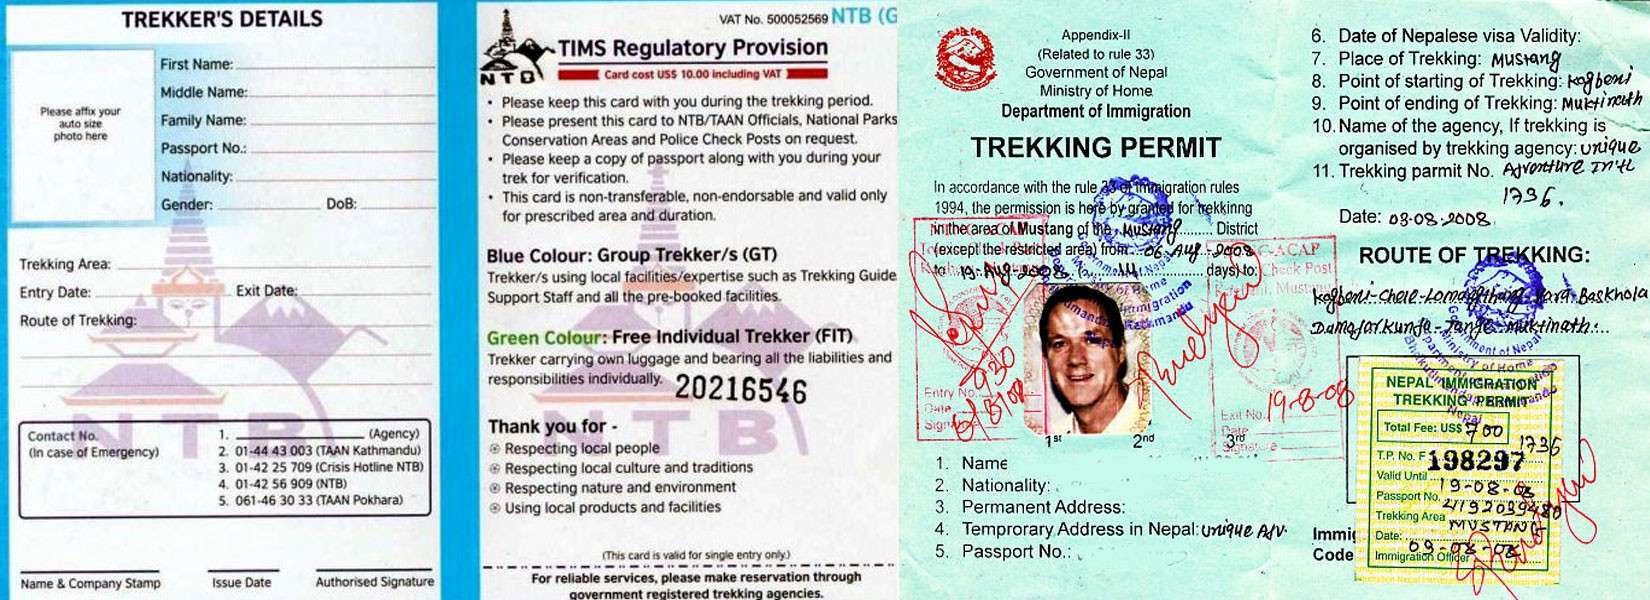 TREKKER'S DETAILS
Please affix your
auto size
photo here
First Name:
Middle Name:
Family Name:
Passport No.:
Nationality:
Gender: DoB:
Trekking Area:
Entry Date: Exit Date:
Route of Trekking:
NTB
Contact No.
(In case of Emergency)
1. (Agency)
2. 01-44 43 003 (TAAN Kathmandu)
3. 01-42 25 709 (Crisis Hotline NTB)
4. 01-42 56 909 (NTB)
5. 061-46 30 33 (TAAN Pokhara)
Name & Company Stamp Issue Date Authorised Signature
VAT No. 500052569 NTB (G
NTB
TIMS Regulatory Provision
Card cost US$ 10.00 including VAT
• Please keep this card with you during the trekking period.
• Please present this card to NTB/TAAN Officials, National Parks
Conservation Areas and Police Check Posts on request.
• Please keep a copy of passport along with you during your
trek for verification.
• This card is non-transferable, non-endorsable and valid only
for prescribed area and duration.
Blue Colour: Group Trekker/s (GT)
Trekker/s using local facilities/expertise such as Trekking Guide
Support Staff and all the pre-booked facilities.
Green Colour: Free Individual Trekker (FIT)
Trekker carrying own luggage and bearing all the liabilities and
responsibilities individually. 20216546
NTB
Thank you for -
Respecting local people
Respecting local culture and traditions
Respecting nature and environment
Using local products and facilities
(This card is valid for single entry only.)
For reliable services, please make reservation through
government registered trekking agencies.
Appendix-II
(Related to rule 33)
Government of Nepal
Ministry of Home
Department of Immigration
TREKKING PERMIT
In accordance with the rule 33 of immigration rules
1994, the permission is here by granted for trekkinng
in the area of Mustang of the Mustang District
(except the restricted area) from 06-Aug-2008
to 19-Aug-2008 ( 14 days) to:
Entry No.
Date
Exit No.
Date
Signature
19-8-08
1st 2nd 3rd
1. Name
2. Nationality:
3. Permanent Address:
4. Temprorary Address in Nepal: Unique Adv.
5. Passport No.:
6. Date of Nepalese visa Validity:
7. Place of Trekking: Mustang
8. Point of starting of Trekking: Kagbeni
9. Point of ending of Trekking: Muktinath
10. Name of the agency, If trekking is
organised by trekking agency: Unique
11. Trekking parmit No. Adventure Int'l
1736.
Date: 03-08-2008
ROUTE OF TREKKING:
NEPAL IMMIGRATION
TREKKING PERMIT
Total Fee: US$ 700
1736
T.P. No. F 198297
Valid Until 19-08-08
Passport No.
Trekking Area MUSTANG
Date: 03-08-08
Immigration Officer
Immig
Code